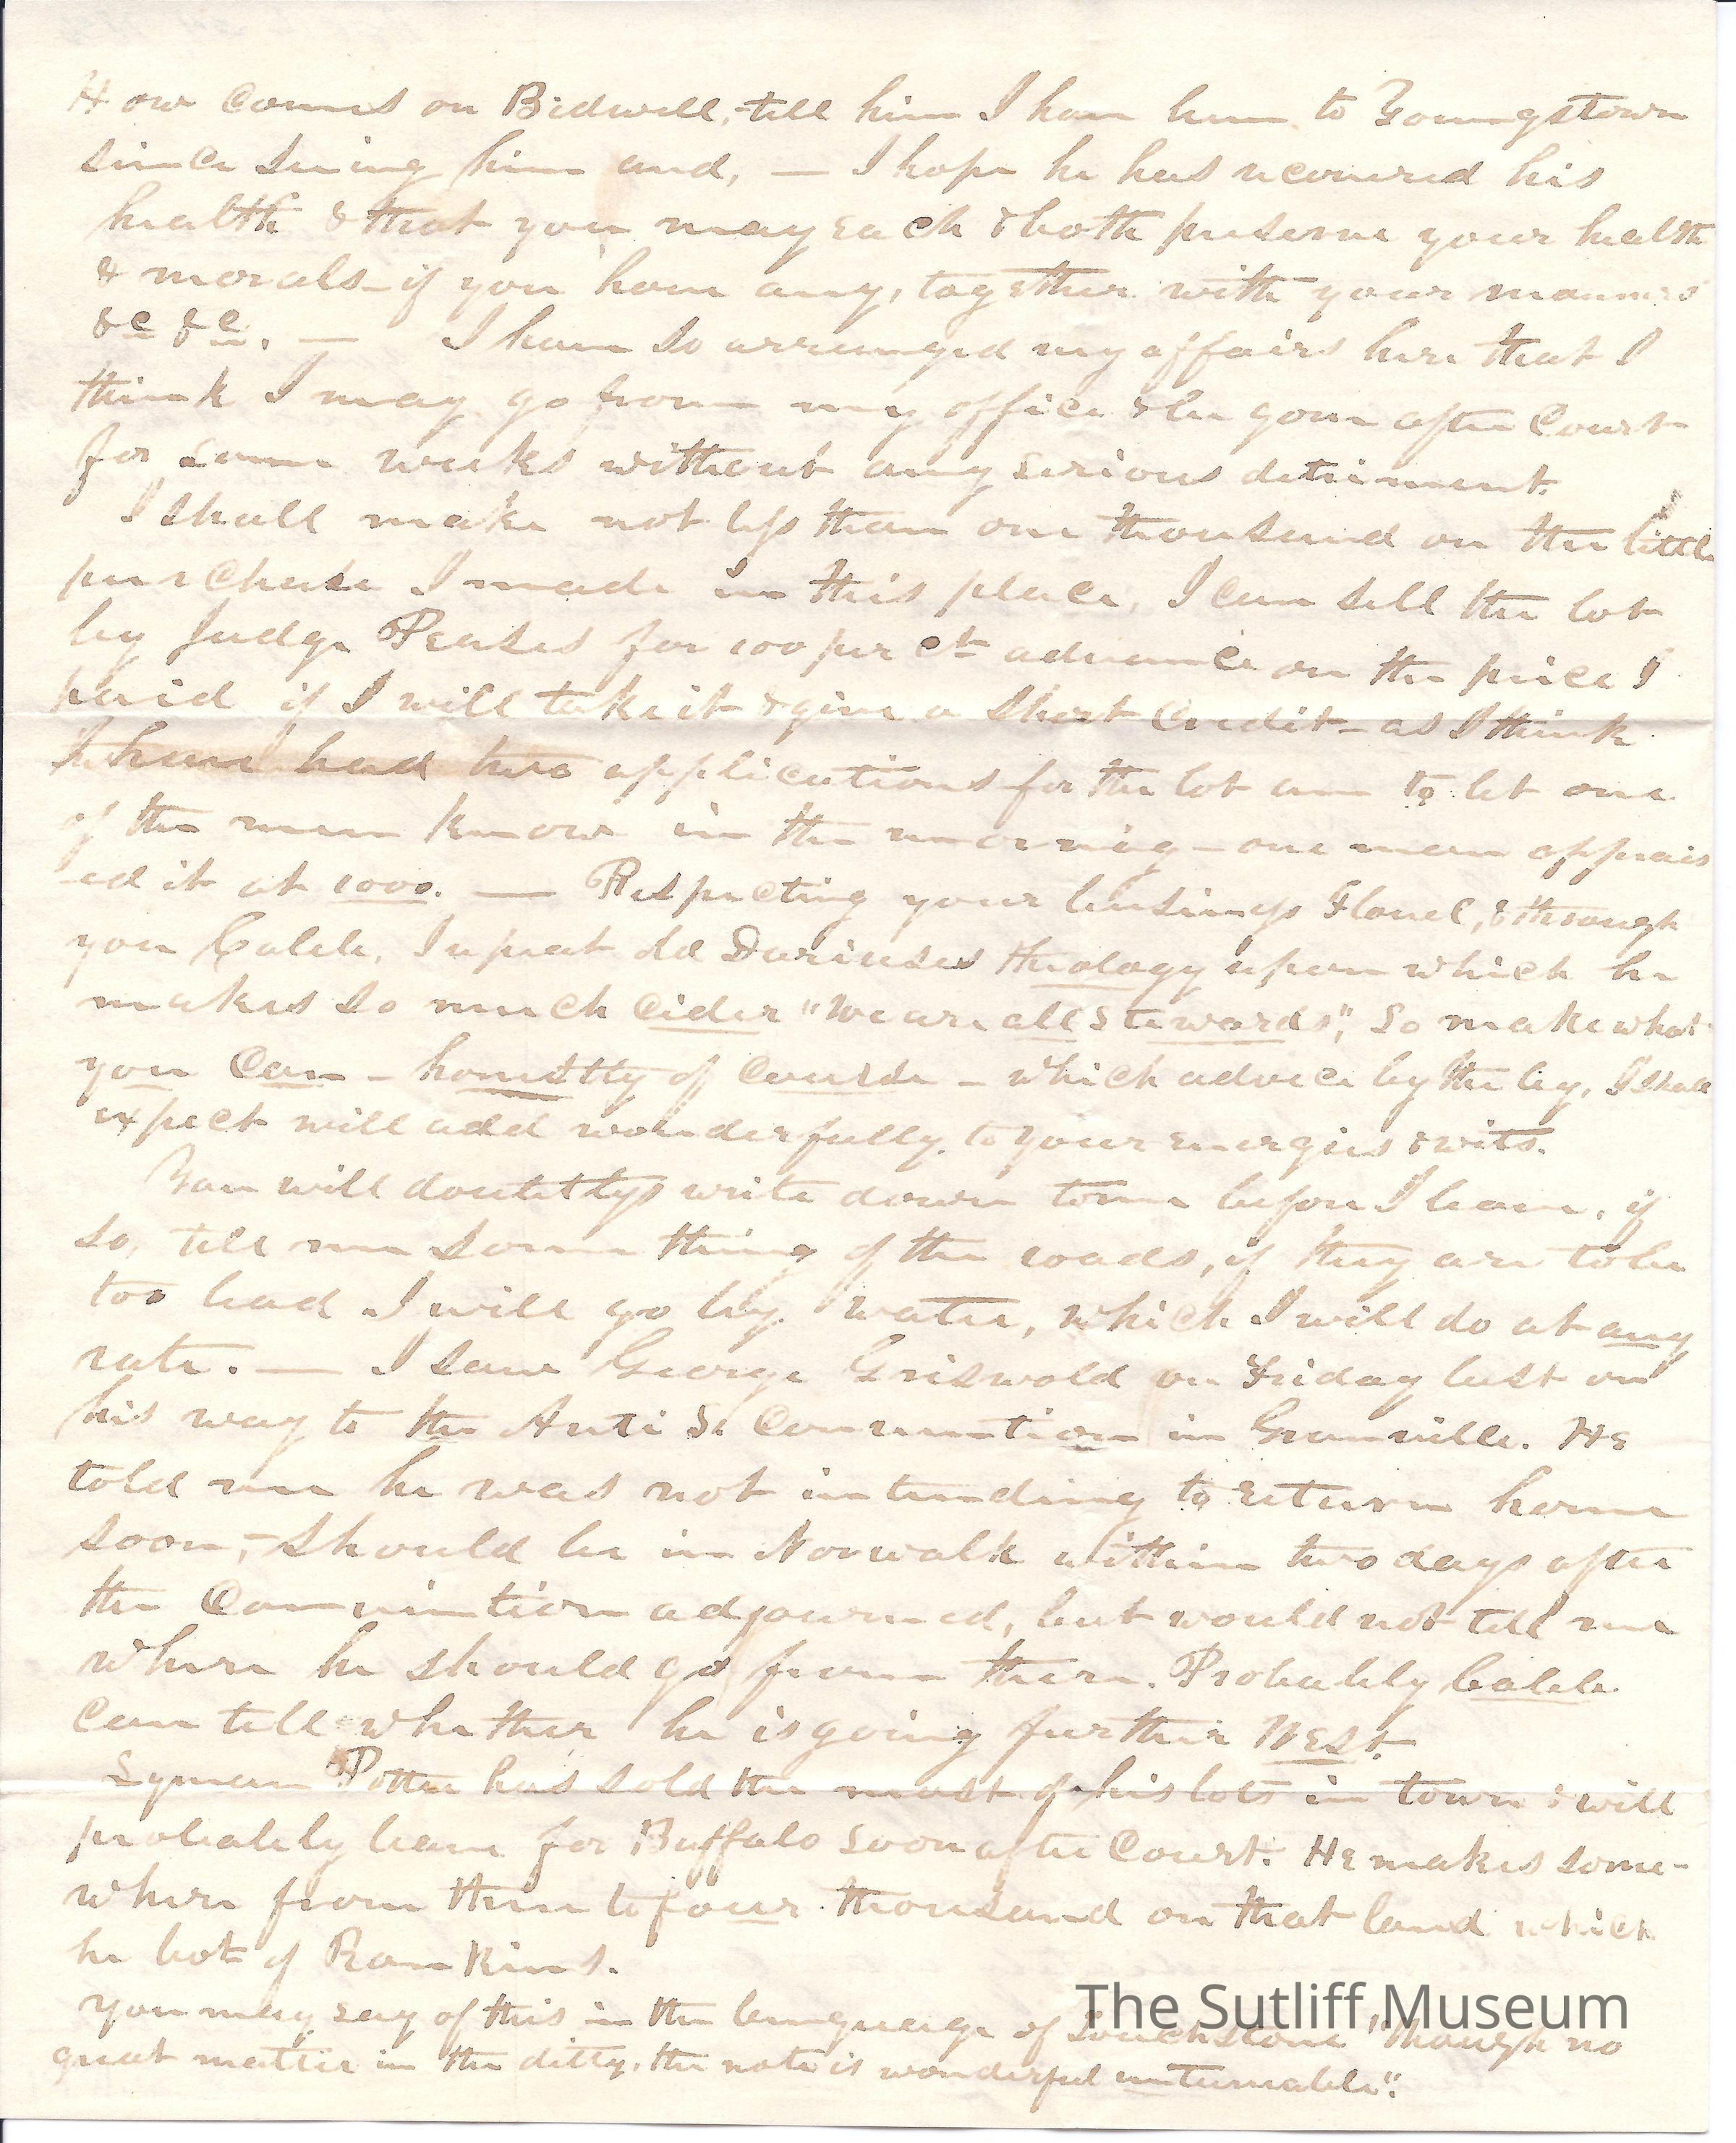 How comes on Bidwell, - tell him I have been to Youngstown
since seeing him and, — I hope he has recovered his
health & that you may each & both preserve your health
& morals - if you have any, together with your manners
&c &c. — I have so arranged my affairs here that I
think I may go from my office & be gone after Court
for some weeks without any serious detriment.
I shall make not less than one thousand on the little
purchase I made in this place, I can sell the lot
by Judge Peases for 100 per ct advance on the price I
paid if I will take it & give a short credit - as I think
I have had two applications for the lot am to let one
of the men know in the morning - one man apprais
-ed it at 1000. — Respecting your business Flavel, & through
you Caleb, I repeat old Dariuses theology upon which he
makes so much cider "We are all stewards", So make what
you can - honestly of course - which advice by the by, I shall
expect will add wonderfully to your energies & wits.
You will doubtless write down to me before I leave, if
so, tell me some thing of the roads, if they are to be
too bad I will go by water, which I will do at any
rate. — I saw George Griswold on Friday last on
his way to the Anti Sl Convention in Granville. He
told me he was not intending to return home
soon, - should be in Norwalk within two days after
the Convention adjourned, but would not tell me
where he should go from there. Probably Caleb
can tell whether he is going further West.
Lyman Potter has sold the most of his lots in town & will
probably leave for Buffalo soon after Court. He makes some-
where from three to four thousand on that land which
he bot of Rankins.
You may say of this in the language of Touchstone "Though no
great matter in the ditty, the note is wonderful untuneable".
The Sutliff Museum